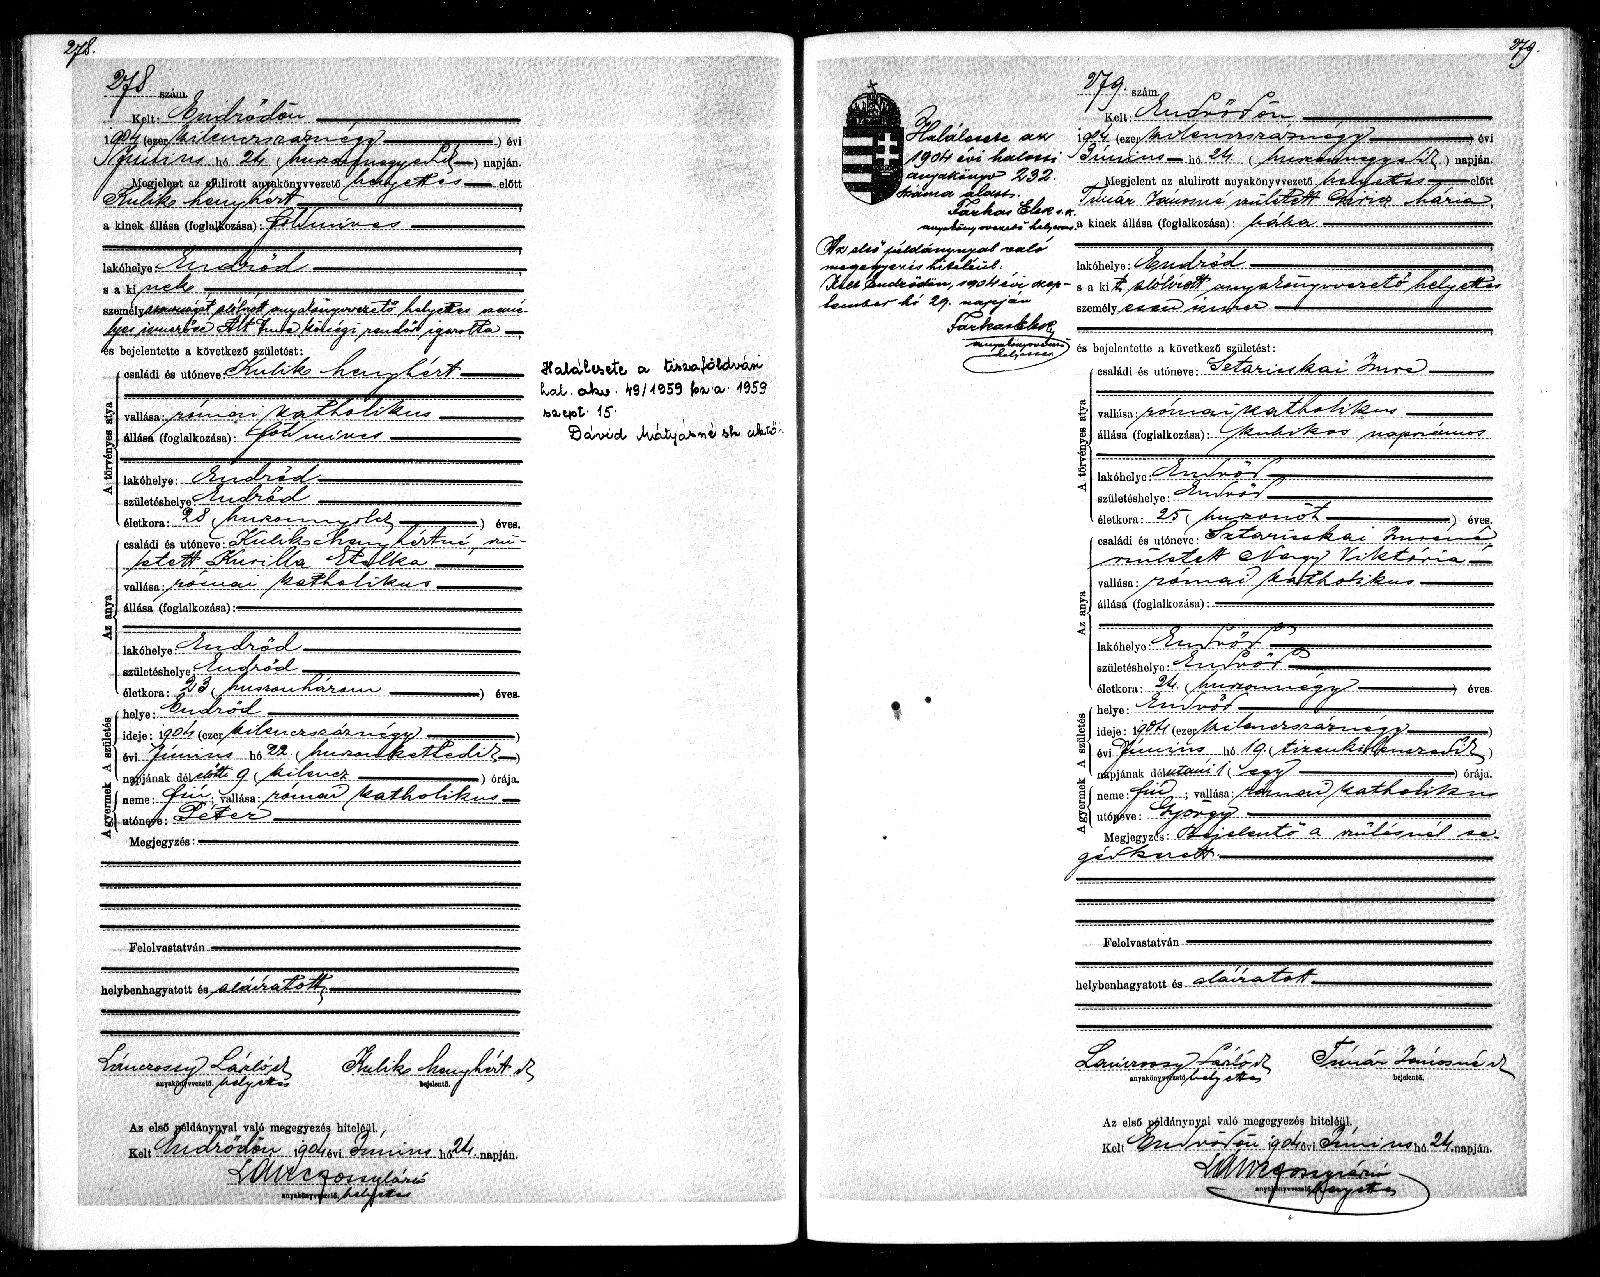 278.
278 szám.
Kelt: Endrődön
1904 (ezer kilenczszáznégy) évi
Június hó 24 (huszonnegyedik) napján.
Megjelent az alulirott anyakönyvvezető helyettes előtt
Kuliks Menyhért
a kinek állása (foglalkozása): földmíves
lakóhelye Endrőd
s a kinek
személyazonságát alólírt anyakönyvvezető helyettes
ismerőse Imre községi rendőr igazolta
és bejelentette a következő születést:
A törvényes atya
családi és utóneve: Kuliks Menyhért
vallása: római katholikus
állása (foglalkozása): földmíves
lakóhelye: Endrőd
születéshelye Endrőd
életkora: 28 (huszonnyolcz) éves.
Az anya
családi és utóneve: Kuliks Menyhértné, szü-
letett Kurilla Etelka
vallása: római katholikus
állása (foglalkozása):
lakóhelye Endrőd
születéshelye Endrőd
életkora: 23 (huszonhárom) éves.
A születés
helye: Endrőd
ideje: 1904 (ezer kilenczszáznégy)
évi Június hó 22 (huszonkettedik)
napjának délelőtti 9 (kilencz) órája.
A gyermek
neme: fiú; vallása: római katholikus
utóneve: Péter
Megjegyzés:
Felolvastatván
helybenhagyatott és aláíratott
Lánczossy László Kuliks Menyhért sk
anyakönyvvezető. helyettes bejelentő.
Az első példánynyal való megegyezés hiteléül.
Kelt Endrődön 1904 évi Június hó 24. napján.
Lánczossy László
anyakönyvvezető. helyettes
Halálesete a tiszaföldvári
hal. akv. 49/1959 fsz. a. 1959
szept. 15.
Dávid Mátyásné sk.
279.
Halálesete az
1904 évi halotti
anyakönyv 232.
száma alatt.
Farkas Elek s.k.
anyakönyvvezető helyettes
Az első példánynyal való
megegyezés hiteléül.
Kelt Endrődön, 1904 évi szep-
tember hó 29. napján
Farkas Elek
anyakönyvvezető
helyettes
279. szám.
Kelt: Endrődön
1904 (ezer kilenczszáznégy) évi
Június hó 24 (huszonnegyedik) napján.
Megjelent az alulirott anyakönyvvezető helyettes előtt
Tímár Jánosné született Mária
a kinek állása (foglalkozása): bába
lakóhelye: Endrőd
s a kit alólírott anyakönyvvezető helyettes
személyesen ismer
és bejelentette a következő születést:
A törvényes atya
családi és utóneve: Sztarinskai Imre
vallása: római katholikus
állása (foglalkozása): kubikos napszámos
lakóhelye: Endrőd
születéshelye: Endrőd
életkora: 25 (huszonöt) éves.
Az anya
családi és utóneve: Sztarinskai Imréné
született Nagy Viktória
vallása: római katholikus
állása (foglalkozása):
lakóhelye: Endrőd
születéshelye: Endrőd
életkora: 24 (huszonnégy) éves.
A születés
helye: Endrőd
ideje: 1904 (ezer kilenczszáznégy)
évi Június hó 19 (tizenkilenczedik)
napjának délutáni 1 (egy) órája.
A gyermek
neme: fiú; vallása: római katholikus
utóneve: György
Megjegyzés: Bejelentő a szülésnél se-
gédkezett.
Felolvastatván
helybenhagyatott és aláíratott
Lánczossy László Tímár Jánosné sk
anyakönyvvezető. helyettes bejelentő.
Az első példánynyal való megegyezés hiteléül.
Kelt Endrődön 1904 évi Június hó 24. napján.
Lánczossy László
anyakönyvvezető. helyettes